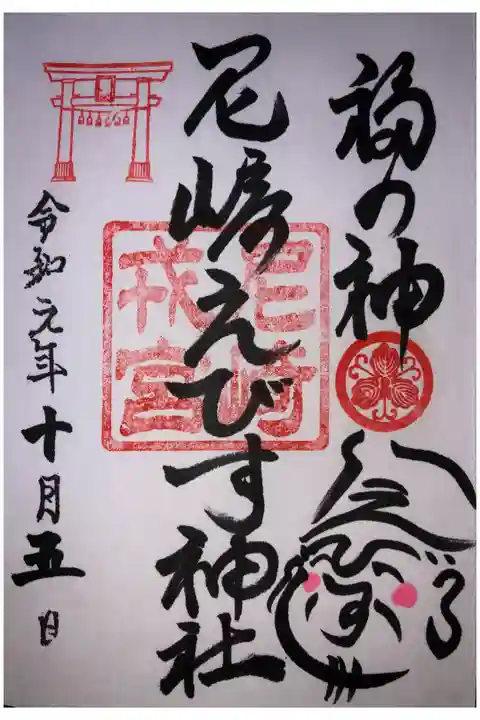 福の神
えびす
尼崎えびす神社
尼崎
戎宮
令和元年十月五日